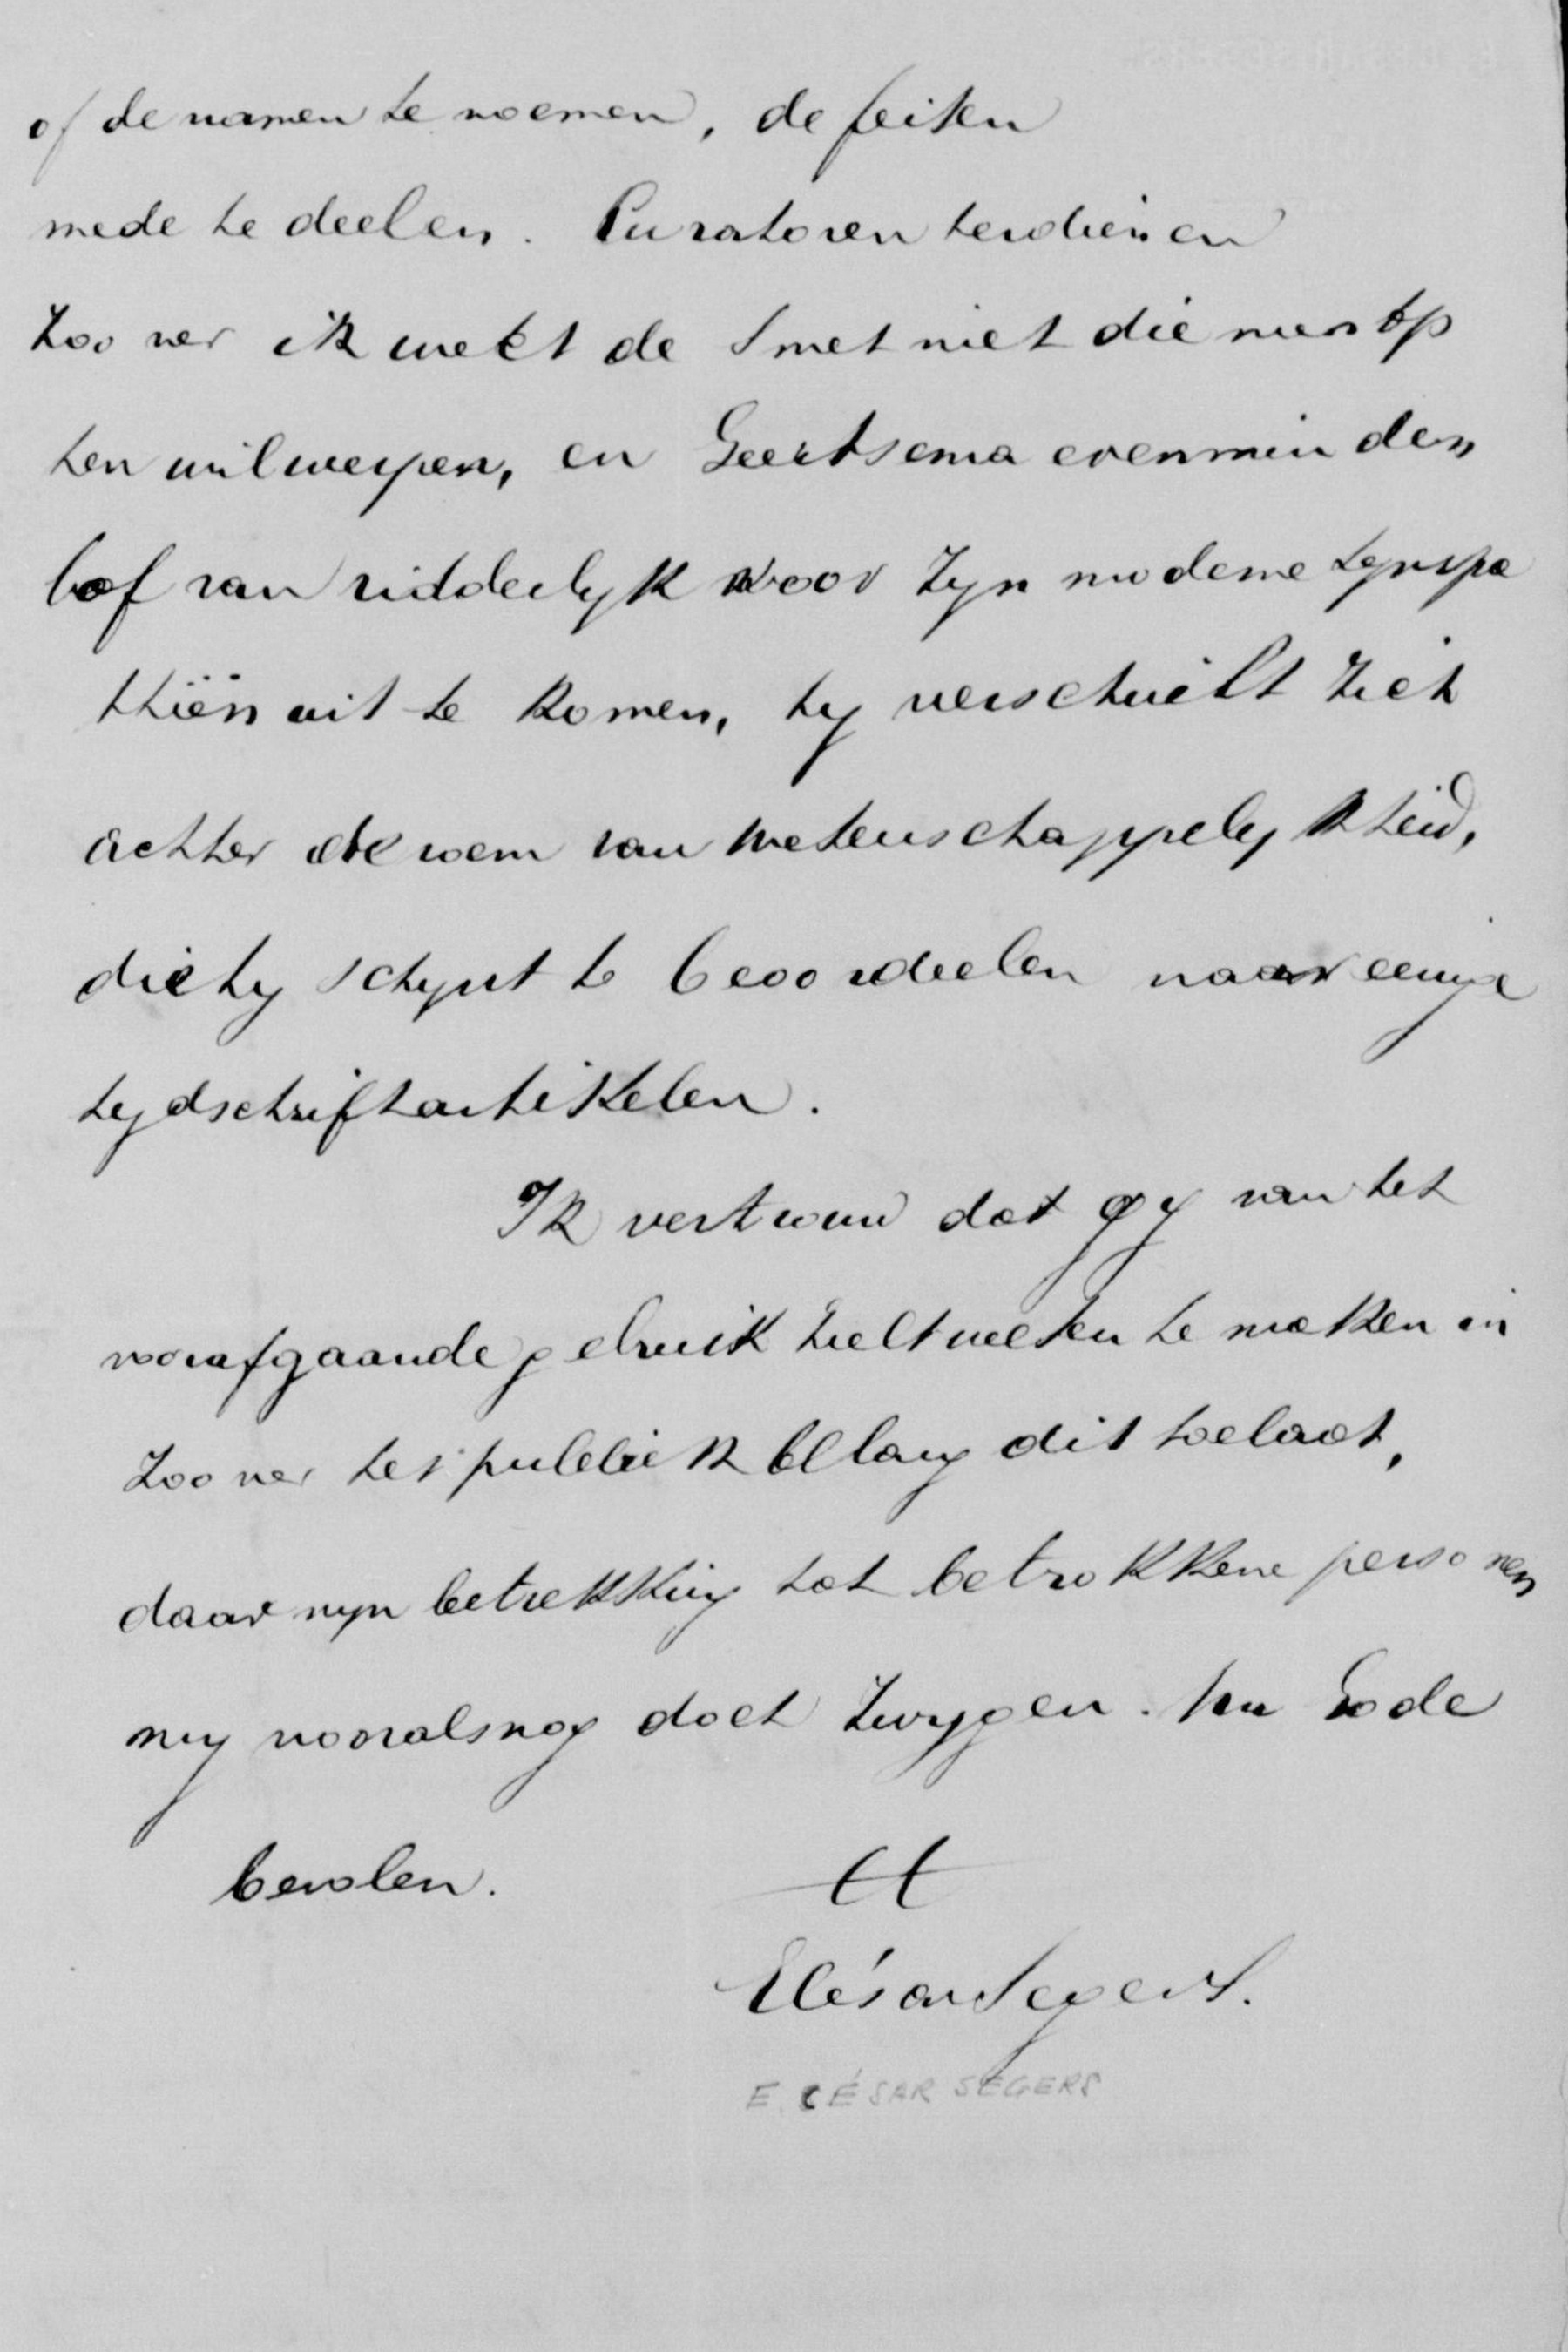 of de namen te noemen, de feiten
mede te deelen. Curatoren verdienen
zoo ver ik weet de smet niet die men op
hen wil werpen, en Geertsema evenmin den
lof van ridderlyk voor zyn moderne sympa
thiën uit te komen, hy verschuilt zich
achter de roem van wetenschappelykheid,
die hy schynt te beoordeelen naar eenige
tydschriftartikelen.
Ik vertrouw dat gy van het
voorafgaande gebruik zult weten te maken in
zoo ver het publiek belang dit toelaat,
daar myn betrekking tot betrokkene personen
my vooralsnog doet zwygen. Uw Gode
bevolen.
ECésar Segers.
E. CÉSAR SEGERS